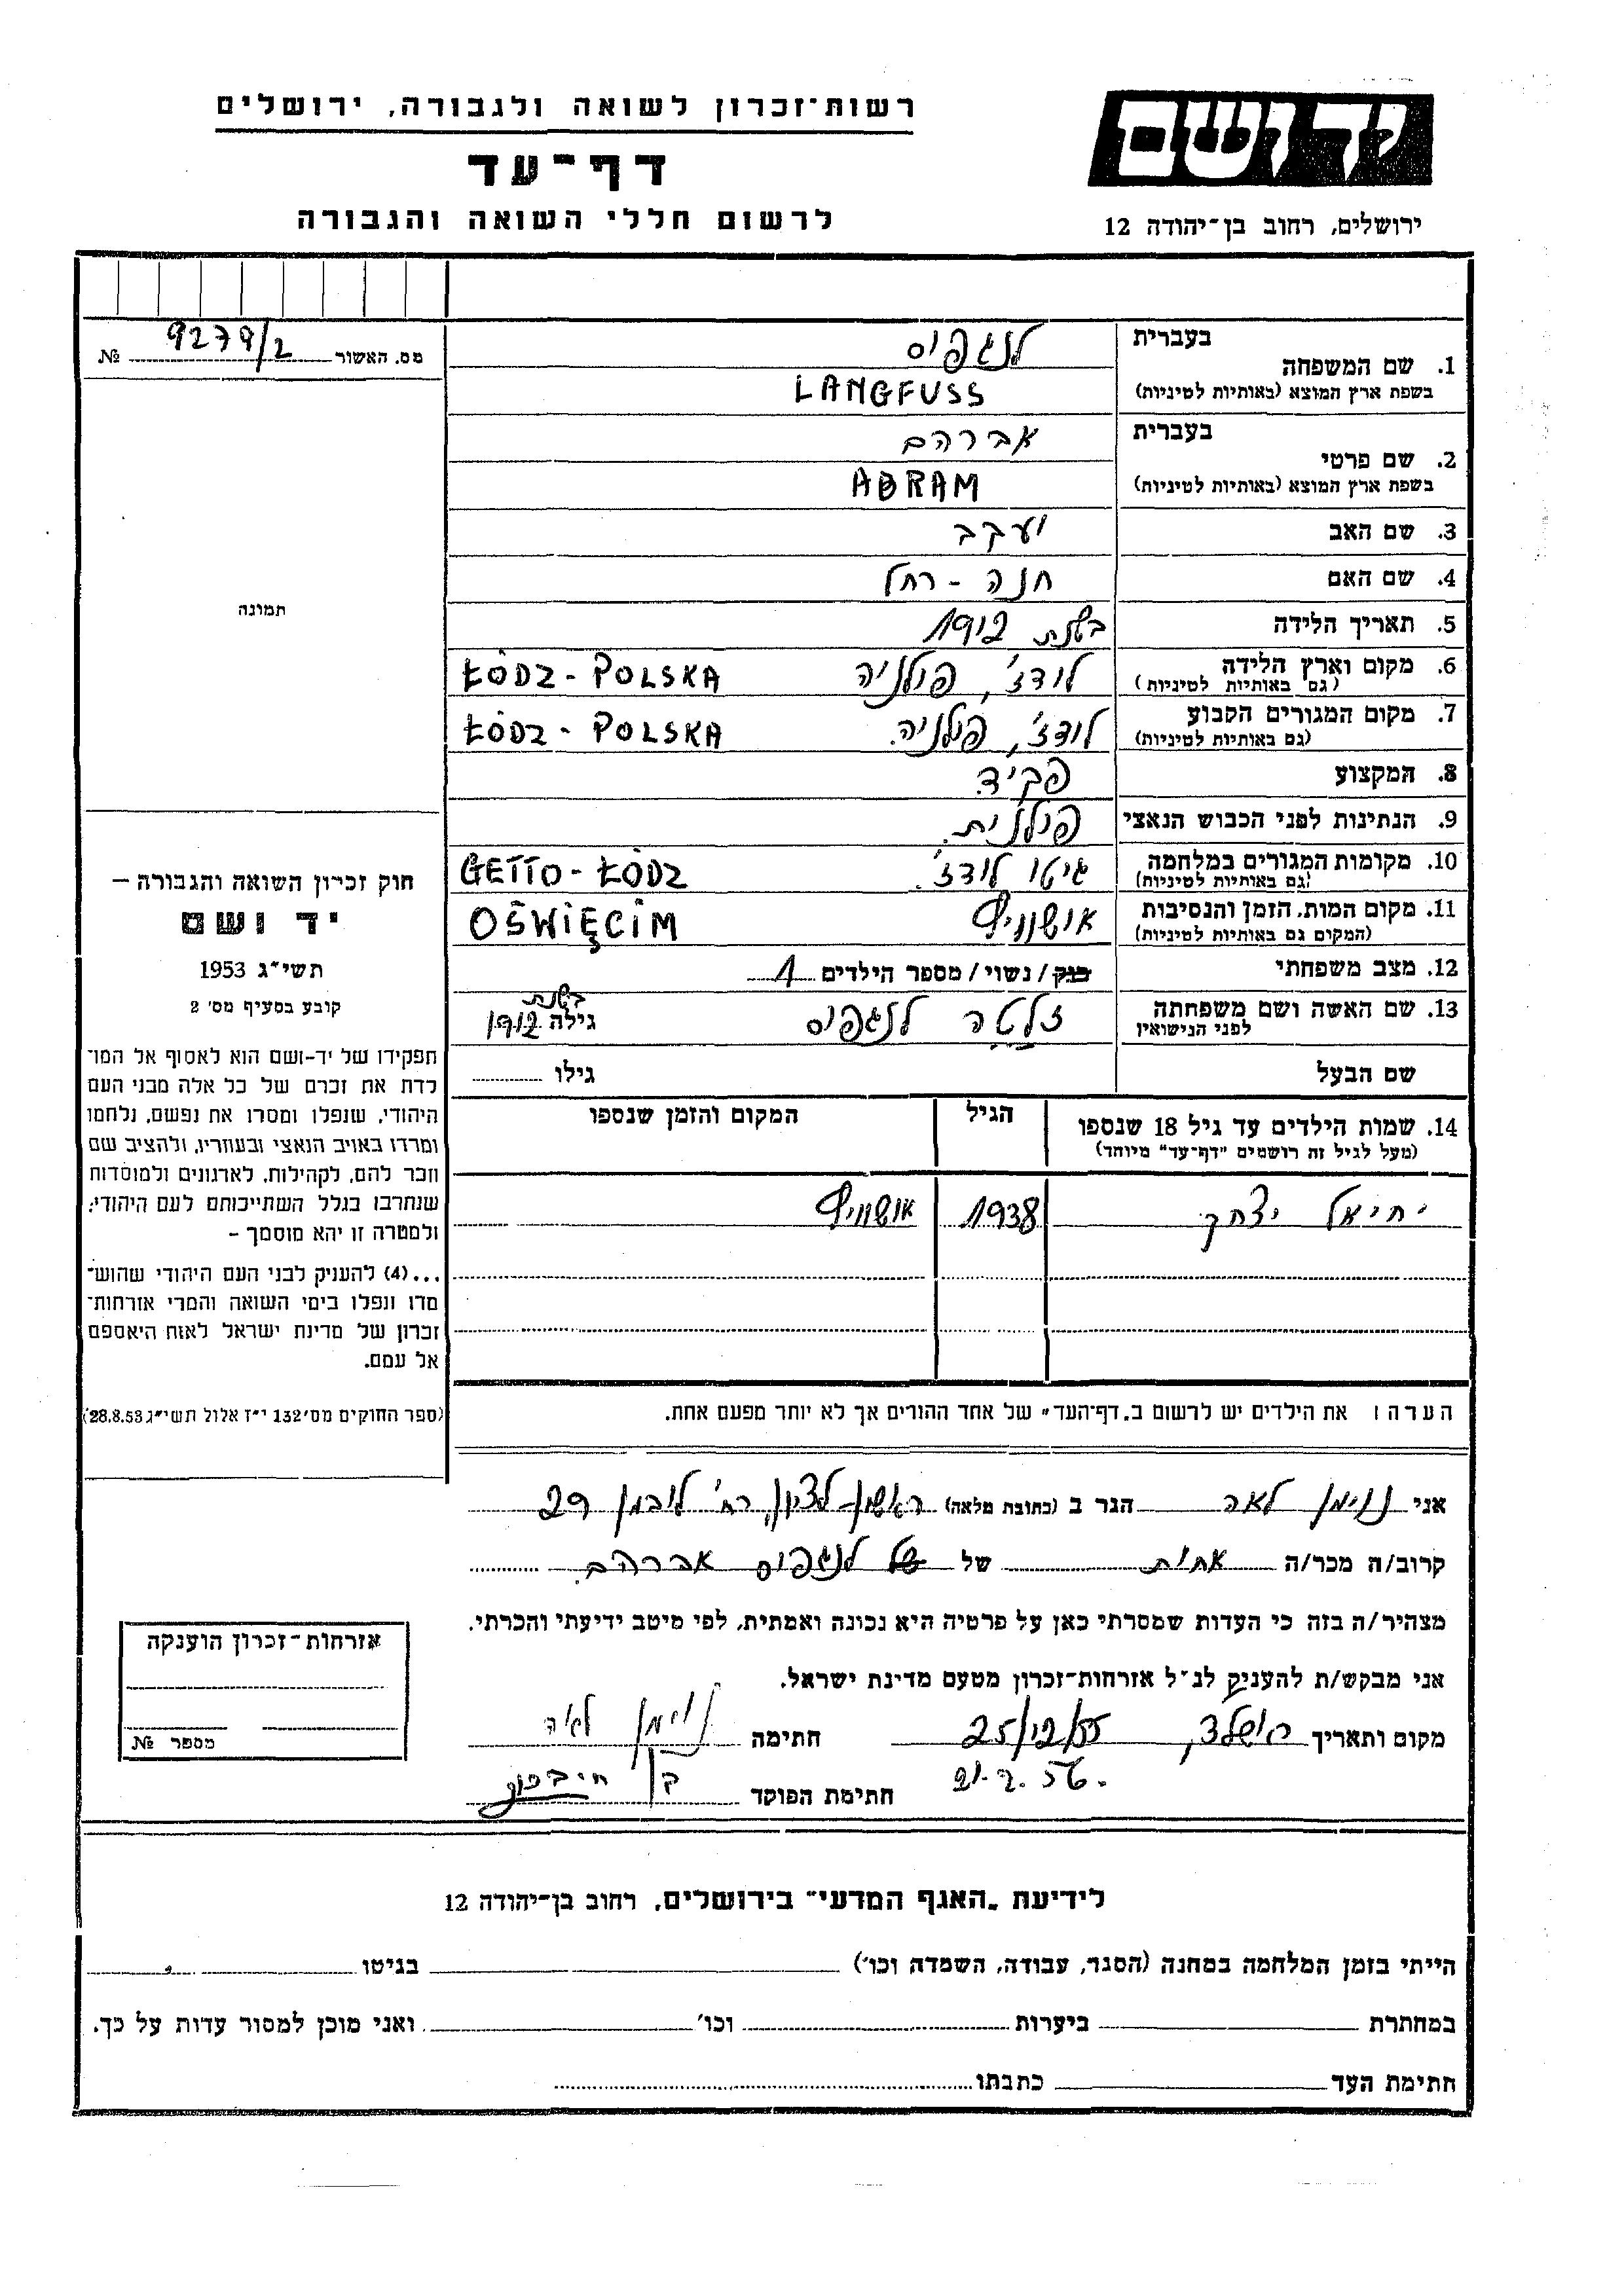 רשות־זכרון לשואה ולגבורה, ירושלים
דף־עד
לרשום חללי השואה והגבורה
יד ושם
ירושלים, רחוב בן־יהודה 12
מס. האשור 9279/2 №
תמונה
חוק זכרון השואה והגבורה —
יד ושם
תשי״ג 1953
קובע בסעיף מס׳ 2
תפקידו של יד-ושם הוא לאסוף אל המו־
לדת את זכרם של כל אלה מבני העם
היהודי, שנפלו ומסרו את נפשם, נלחמו
ומרדו באויב הנאצי ובעוזריו, ולהציב שם
וזכר להם, לקהילות, לארגונים ולמוסדות
שנחרבו בגלל השתייכותם לעם היהודי;
ולמטרה זו יהא מוסמך —
...(4) להעניק לבני העם היהודי שהוש־
מדו ונפלו בימי השואה והמרי אזרחות־
זכרון של מדינת ישראל לאות היאספם
אל עמם.
(ספר החוקים מס׳ 132 י״ז אלול תשי״ג 28.8.53)
1. שם המשפחה
בעברית לנגפוס
בשפת ארץ המוצא (באותיות לטיניות) LANGFUSS
2. שם פרטי
בעברית אברהם
בשפת ארץ המוצא (באותיות לטיניות) ABRAM
3. שם האב יעקב
4. שם האם חנה - רחל
5. תאריך הלידה בשנת 1912
6. מקום וארץ הלידה לודז׳, פולניה ŁÓDZ - POLSKA
(גם באותיות לטיניות)
7. מקום המגורים הקבוע לודז׳, פולניה. ŁÓDZ - POLSKA
(גם באותיות לטיניות)
8. המקצוע פקיד
9. הנתינות לפני הכבוש הנאצי פולנית.
10. מקומות המגורים במלחמה גיטו לודז׳. GETTO - ŁÓDZ
(גם באותיות לטיניות)
11. מקום המות, הזמן והנסיבות אושוויץ OŚWIĘCIM
(המקום גם באותיות לטיניות)
12. מצב משפחתי רוק / נשוי / מספר הילדים 1
13. שם האשה ושם משפחתה זלטה לנגפוס גילה בשנת 1912
לפני הנישואין
שם הבעל גילו
14. שמות הילדים עד גיל 18 שנספו הגיל המקום והזמן שנספו
(מעל לגיל זה רושמים "דף־עד" מיוחד)
יחיאל יצחק 1938 אושוויץ
הערה: את הילדים יש לרשום ב„דף־העד״ של אחד ההורים אך לא יותר מפעם אחת.
אני נוימן לאה הגר ב (כתובת מלאה) ראשון לציון, רח׳ ליבמן 29
קרוב/ה מכר/ה אחות של של לנגפוס אברהם.
מצהיר/ה בזה כי העדות שמסרתי כאן על פרטיה היא נכונה ואמתית, לפי מיטב ידיעתי והכרתי.
אני מבקש/ת להעניק לנ״ל אזרחות־זכרון מטעם מדינת ישראל.
מקום ותאריך ראשלצ, 25/12/55 חתימה נוימן לאה
21.2.56. חתימת הפוקד
אזרחות־זכרון הוענקה
מספר №
לידיעת „האגף המדעי״ בירושלים, רחוב בן־יהודה 12
הייתי בזמן המלחמה במחנה (הסגר, עבודה, השמדה וכו׳) בגיטו
במחתרת ביערות וכו׳ ואני מוכן למסור עדות על כך.
חתימת העד כתבתו